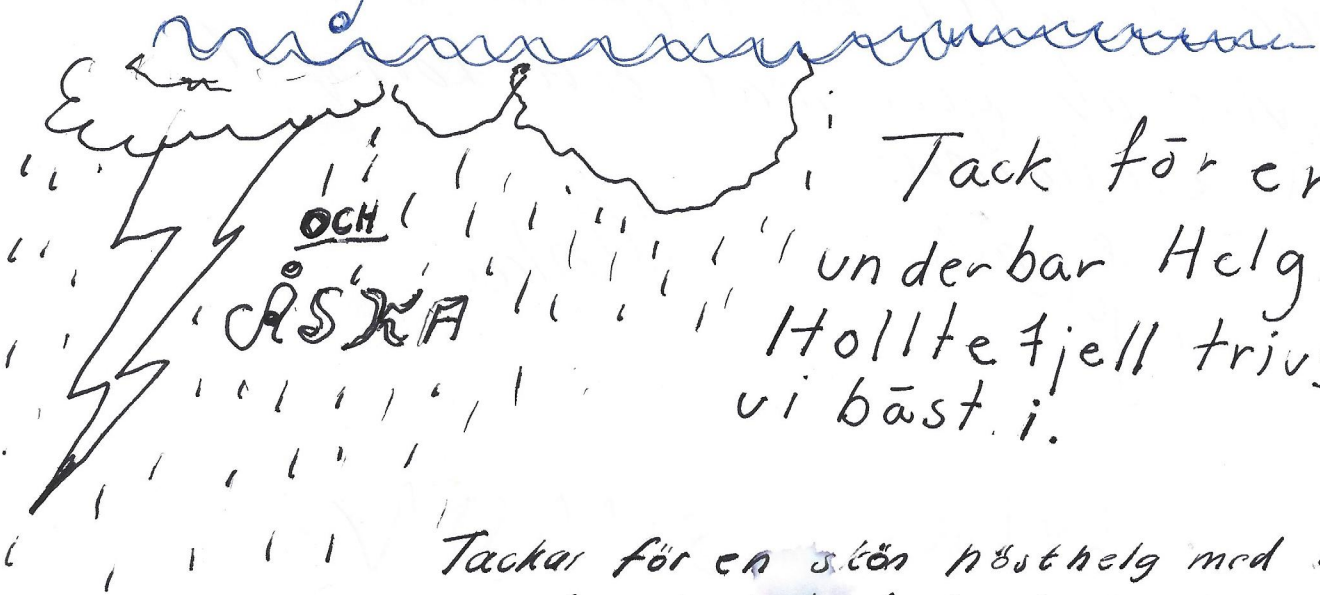 OCH
ÅSKA
Tack för en
underbar Helg
Holltefjell triv
vi bäst i.
Tackar för en skön hösthelg med